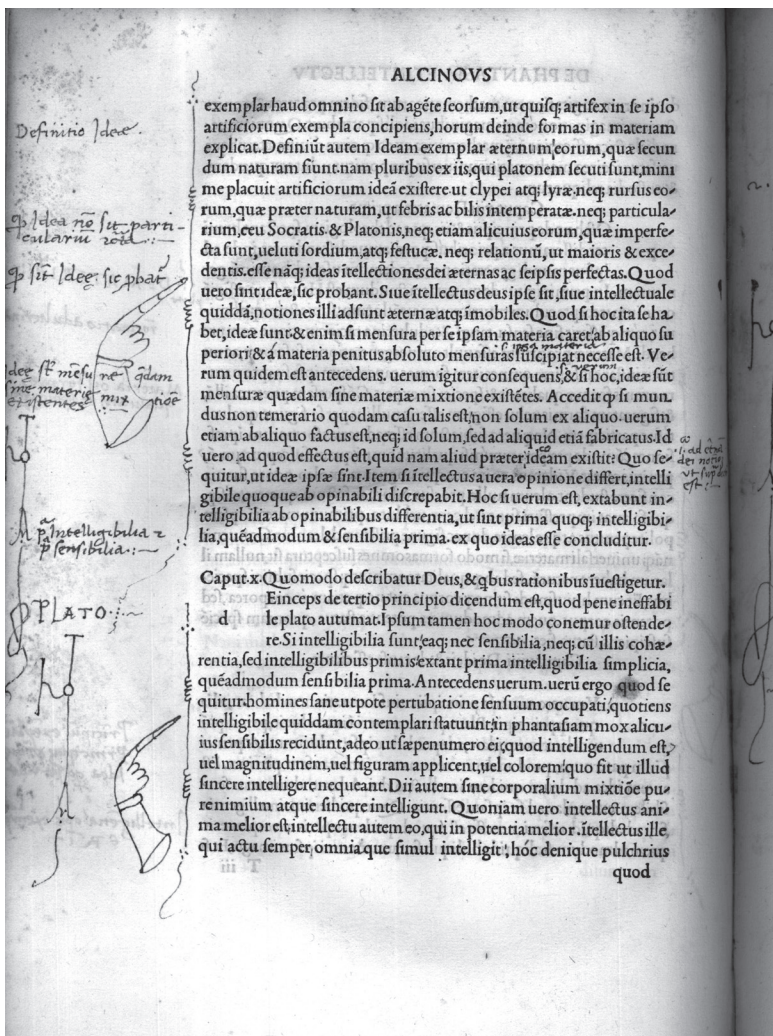 ALCINOVS
exemplar haud omnino sit ab agēte seorsum, ut quisq; artifex in se ipso
artificiorum exempla concipiens, horum deinde formas in materiam
explicat. Definiūt autem Ideam exemplar æternum eorum, quæ secun
dum naturam fiunt. nam pluribus ex iis, qui platonem secuti sunt, mini
me placuit artificiorum ideā existere. ut clypei atq; lyræ. neq; rursus eo-
rum, quæ præter naturam, ut febris ac bilis intemperatæ. neq; particula-
rium, ceu Socratis & Platonis, neq; etiam alicuius eorum, quæ imperfe-
cta sunt, ueluti sordium, atq; festucæ. neq; relationū, ut maioris & exce-
dentis. esse nāq; ideas ītellectiones dei æternas ac seipsis perfectas. Quod
uero sint ideæ, sic probant. Siue ītellectus deus ipse sit, siue intellectuale
quiddā, notiones illi adsunt æternæ atq; īmobiles. Quod si hoc ita se ha-
bet, ideæ sunt. & enim si mensura per se ipsam materia caret, ab aliquo su
periori & á materia penitus absoluto mensuras suscipiat necesse est. Ve-
rum quidem est antecedens. uerum igitur consequens, & si hoc, ideæ sūt
mensuræ quædam sine materiæ mixtione existētes. Accedit q̱ si mun-
dus non temerario quodam casu talis est, non solum ex aliquo. uerum
etiam ab aliquo factus est, neq; id solum, sed ad aliquid etiā fabricatus. Id
uero, ad quod effectus est, quid nam aliud præter ideam existit? Quo se-
quitur, ut ideæ ipsæ sint. Item si ītellectus a uera opinione differt, intelli
gibile quoque ab opinabili discrepabit. Hoc si uerum est, extabunt in-
telligibilia ab opinabilibus differentia, ut sint prima quoq; intelligibi-
lia, quéadmodum & sensibilia prima. ex quo ideas esse concluditur.
Caput. x. Quomodo describatur Deus, & qbus rationibus īuestigetur.
Einceps de tertio principio dicendum est, quod pene ineffabi
d le plato autumat. Ipsum tamen hoc modo conemur ostende-
re. Si intelligibilia sunt, eaq; nec sensibilia, neq; cū illis cohæ-
rentia, sed intelligibilibus primis, extant prima intelligibilia simplicia,
quéadmodum sensibilia prima. Antecedens uerum. uerū ergo quod se
quitur. homines sane utpote pertubatione sensuum occupati, quotiens
intelligibile quiddam contemplari statuunt, in phantasiam mox alicu-
ius sensibilis recidunt, adeo ut sæpenumero ei, quod intelligendum est,
uel magnitudinem, uel figuram applicent, uel colorem. quo fit ut illud
sincere intelligere nequeant. Dii autem sine corporalium mixtiōe pu-
re nimium atque sincere intelligunt. Quoniam uero intellectus ani-
ma melior est, intellectu autem eo, qui in potentia melior. ītellectus ille,
qui actu semper, omniaque simul intelligit, hóc denique pulchrius
quod
T iii
Definitio Ideæ.
q̱ Idea nō sit parti-
cularium
q̱ sit Ideę. sic ꝓbat
Idee sūt mēsu ne q̄dam
sine materie mix tiōe
existentes
si ipsa materia
si uerum
Intelligibilia &
sensibilia.
PLATO.